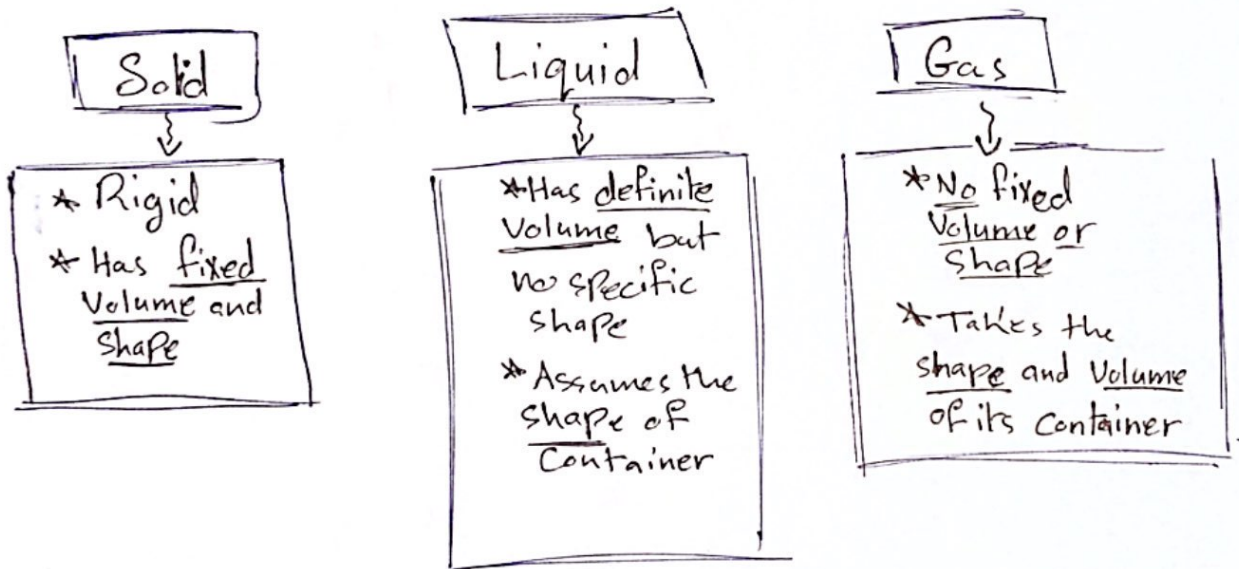 Solid
* Rigid
* Has fixed
Volume and
shape
Liquid
* Has definite
Volume but
no specific
shape
* Assumes the
shape of
Container
Gas
* No fixed
Volume or
shape
* Takes the
shape and Volume
of its Container